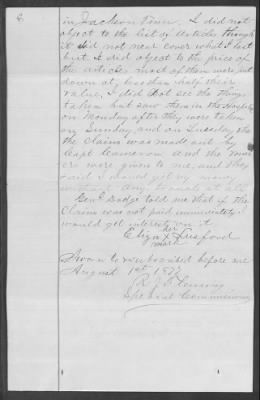 6
in Jackson Town. I did not
object to the list of articles though
it did not near cover what I lost
but I did object to the price of
the articles most of them were put
down at less than half their
value, I did not see the things
taken but saw them in the Hospital
on Monday after they were taken
on Sunday and on Tuesday
the Claims was made out by
Capt Cameron and the
were given to me, and they
said I should get my money
without any trouble at all
Genl Dodge told me that if the
Claims was not paid immediately I
would get interest on it
her
Eliza X
mark
Sworn to & subscribed before me
August 1st 1877
R. B.
Special Commissioner